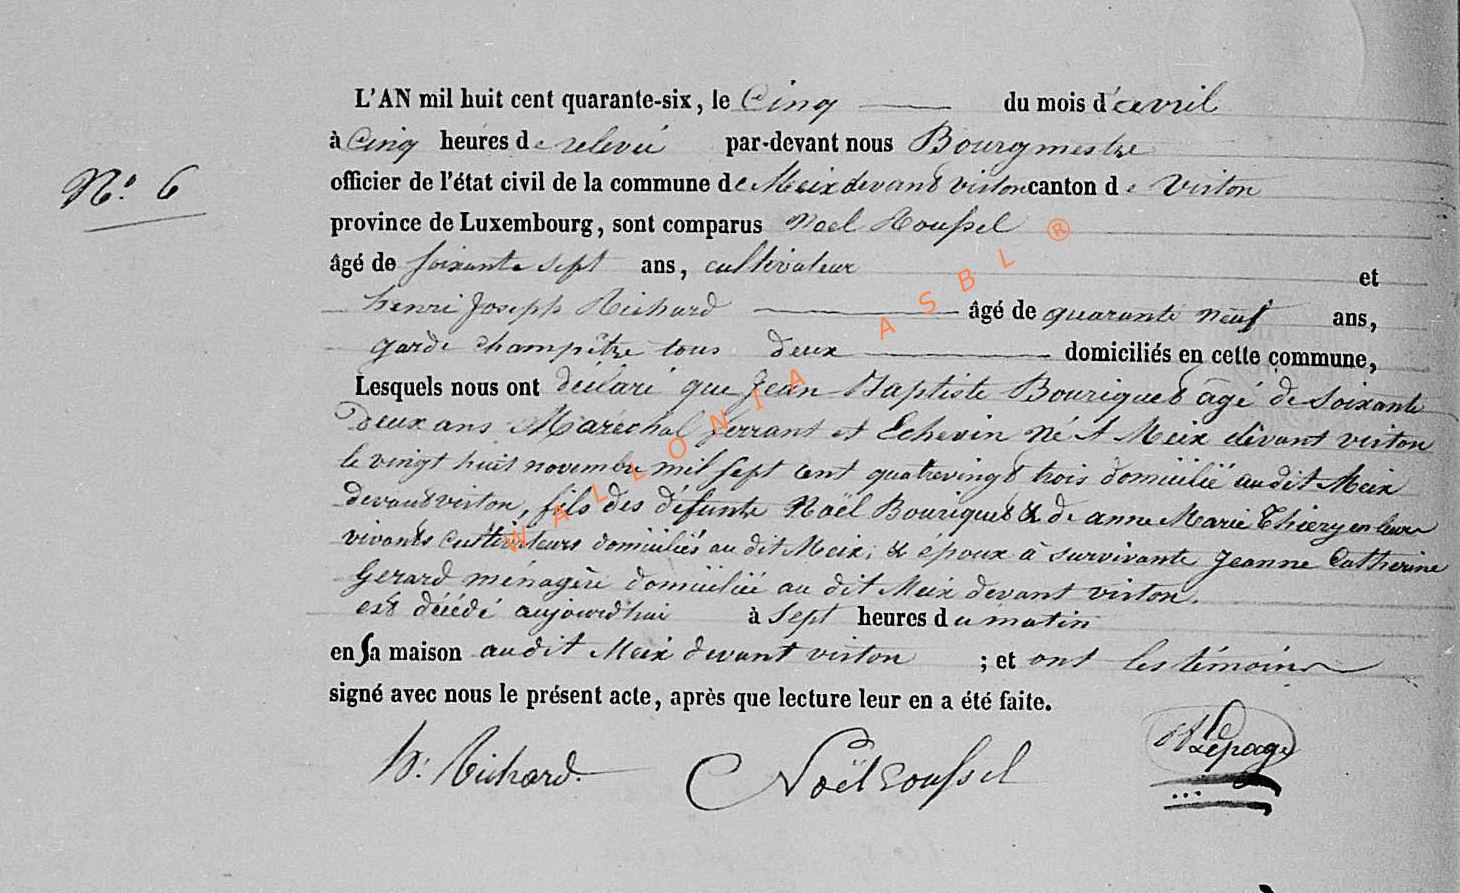 L'AN mil huit cent quarante-six, le Cinq du mois d'avril
à Cinq heures de relevée par-devant nous Bourgmestre
N.o 6
officier de l'état civil de la commune de Meix devant virton canton de Virton
province de Luxembourg, sont comparus Noel Roussel
âgé de soixante sept ans, cultivateur et
henri Joseph Richard âgé de quarante neuf ans,
garde champêtre tous deux domiciliés en cette commune,
Lesquels nous ont déclaré que Jean Baptiste Bouriquet âgé de Soixante
Deux ans Maréchal ferrant et Echevin né à Meix devant virton
le vingt huit novembre mil sept cent quatrevingt trois domicilié au dit Meix
devant virton, fils des défunts Noël Bouriquet & de anne Marie Thiery en leurs
vivants cultivateurs domiciliés au dit Meix; & époux à survivante Jeanne Catherine
Gerard ménagère domiciliée au dit Meix devant virton.
est décédé aujourd'hui à Sept heures du matin
en sa maison audit Meix devant virton ; et ont les témoins
signé avec nous le présent acte, après que lecture leur en a été faite.
h: Richard. Noël Roussel Lepage
WALLONIA ASBL ®